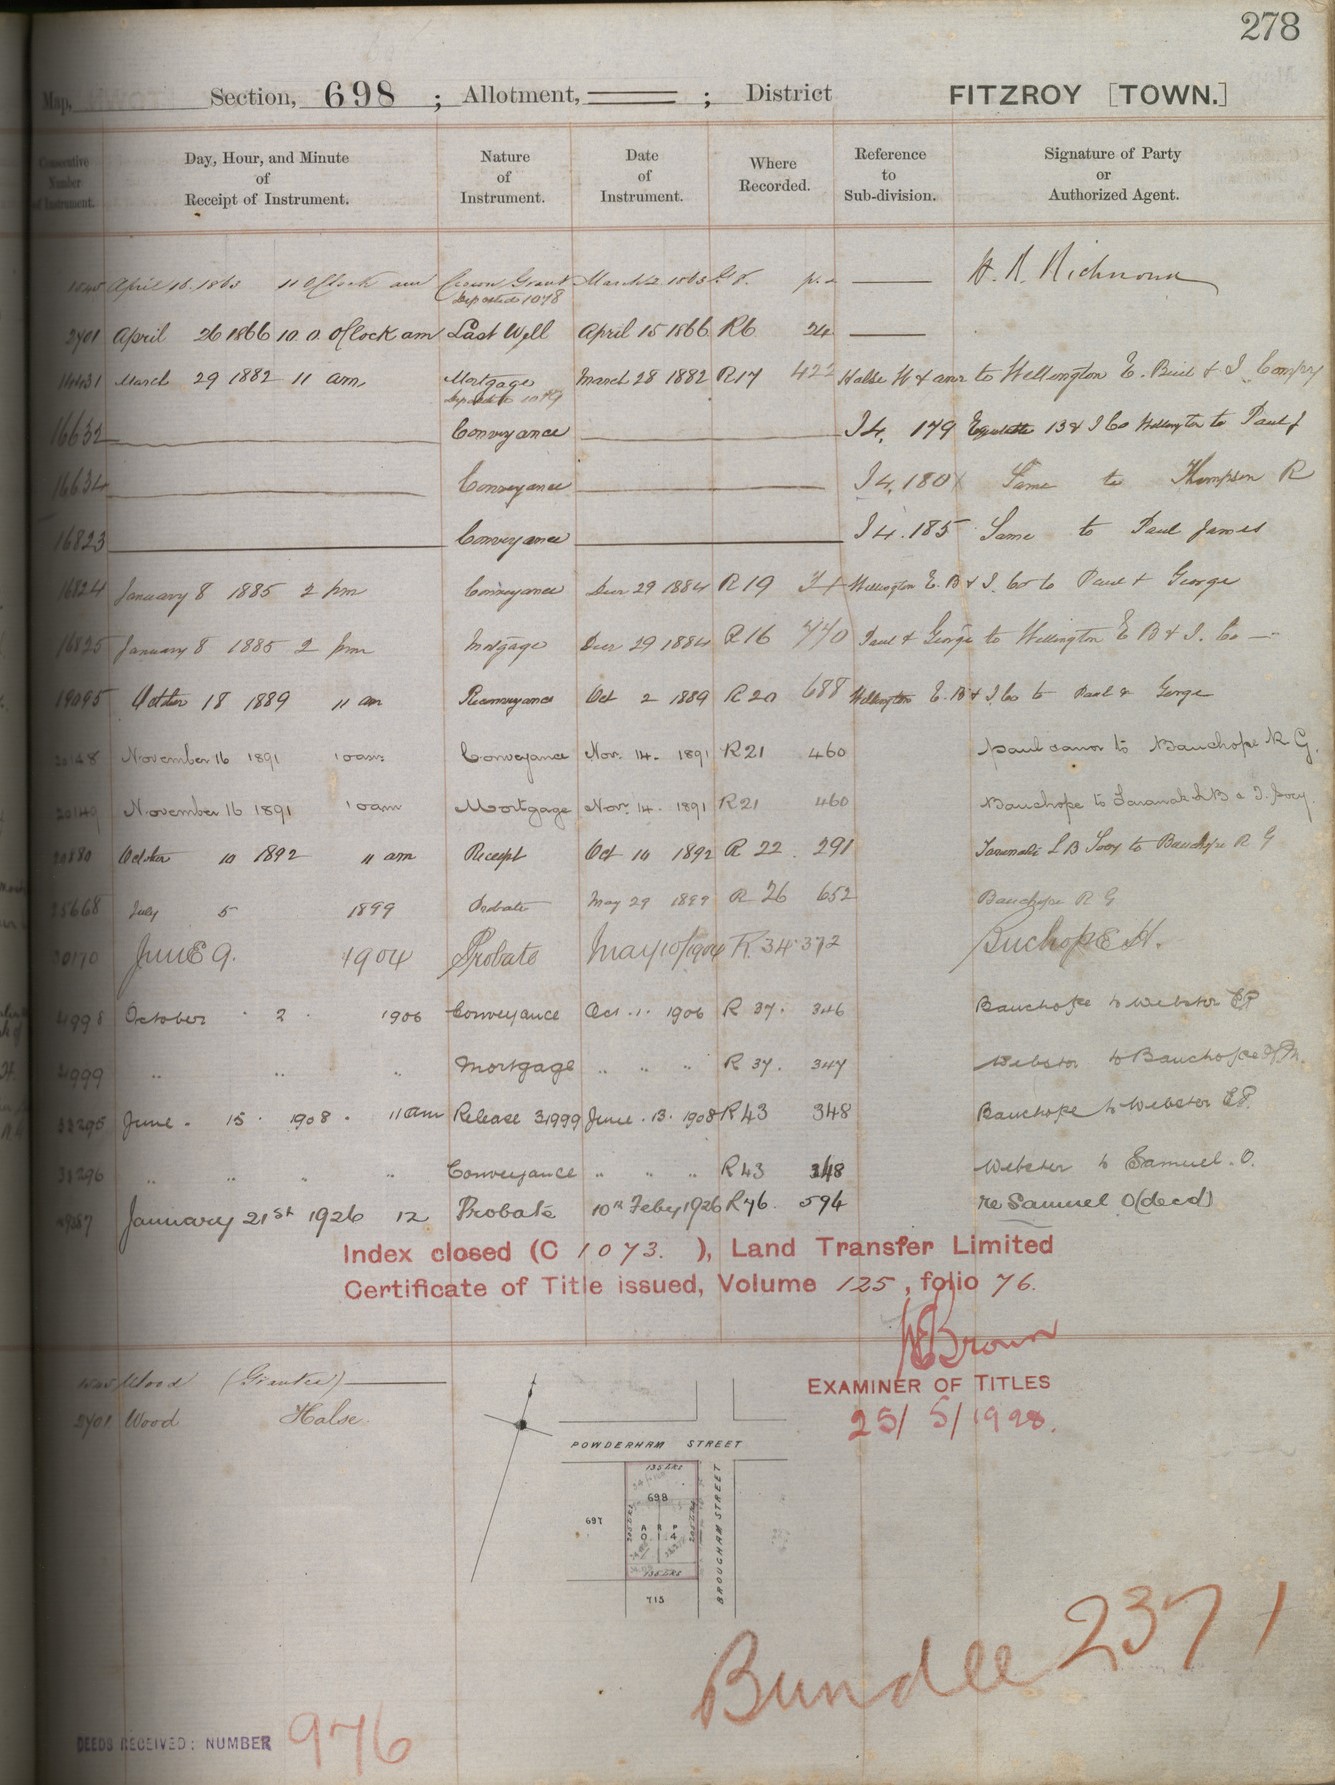 278
Map, Section, 698 ; Allotment, ; District FITZROY [TOWN.]
Consecutive Number of Instrument. Day, Hour, and Minute of Receipt of Instrument. Nature of Instrument. Date of Instrument. Where Recorded. Reference to Sub-division. Signature of Party or Authorized Agent.
April 16 1863 11 O'Clock am Crown Grant March 2 1863 G 8. H. R. Richmond
Deposited 1078
2701 April 26 1866 10. 0. O'Clock am Last Will April 15 1866 R6 24
March 29 1882 11 am Mortgage March 28 1882 R17 422 Halse W & anr to Wellington E. Buil & I. Compy
16632 Conveyance I 4. 179 13 & I Co Wellington to Paul J
16634 Conveyance I 4. 180 Same to Thompson R
16823 Conveyance I 4. 185 Same to Paul James
16824 January 8 1885 2 pm Conveyance Decr 29 1884 R 19 Wellington E. B & I. Co to Paul & George
16825 January 8 1885 2 pm Mortgage Decr 29 1884 R 16 770 Paul & George to Wellington E B & I. Co
19095 October 18 1889 11 am Reconveyance Oct 2 1889 R 20 688 Wellington E. B & I. Co to Paul & George
20148 November 16 1891 10am Conveyance Nov. 14. 1891 R21 460 Paul & anor to Bauchope R. G.
20149 November 16 1891 10am Mortgage Nov. 14. 1891 R21 460 Bauchope to Taranaki L B & I. Socy.
20880 October 10 1892 11 am Receipt Oct 10 1892 R 22. 291 Taranaki L B Socy to Bauchope R G
25668 July 5 1899 Probate May 29 1899 R 26 652 Bauchope R G
30170 June 9. 1904 Probate May 10/1904 R. 34 372 Buchope H.
4998 October 2 1906 Conveyance Oct. 1. 1906 R 37. 346 Bauchope to Webster E P
4999 " " " Mortgage " " " R 37. 347 Webster to Bauchope
June. 15. 1908. 11am Release 31999 June. 13. 1908 R43 348 Bauchope to Webster E P.
" " " " Conveyance " " " R43 348 Webster to Samuel. O.
January 21st 1926 12 Probate 10th Feby 1926 R76. 594 re Samuel O (decd)
Index closed (C 1073. ), Land Transfer Limited
Certificate of Title issued, Volume 125, folio 76.
Brown
EXAMINER OF TITLES
25/5/1928.
Wood (Grantee)
2701 Wood Halse
POWDERHAM STREET
135 LKS
698
697
A R P
0 1 4
135 LKS
BROUGHAM STREET
713
Bundle 2371
DEEDS RECEIVED: NUMBER 976